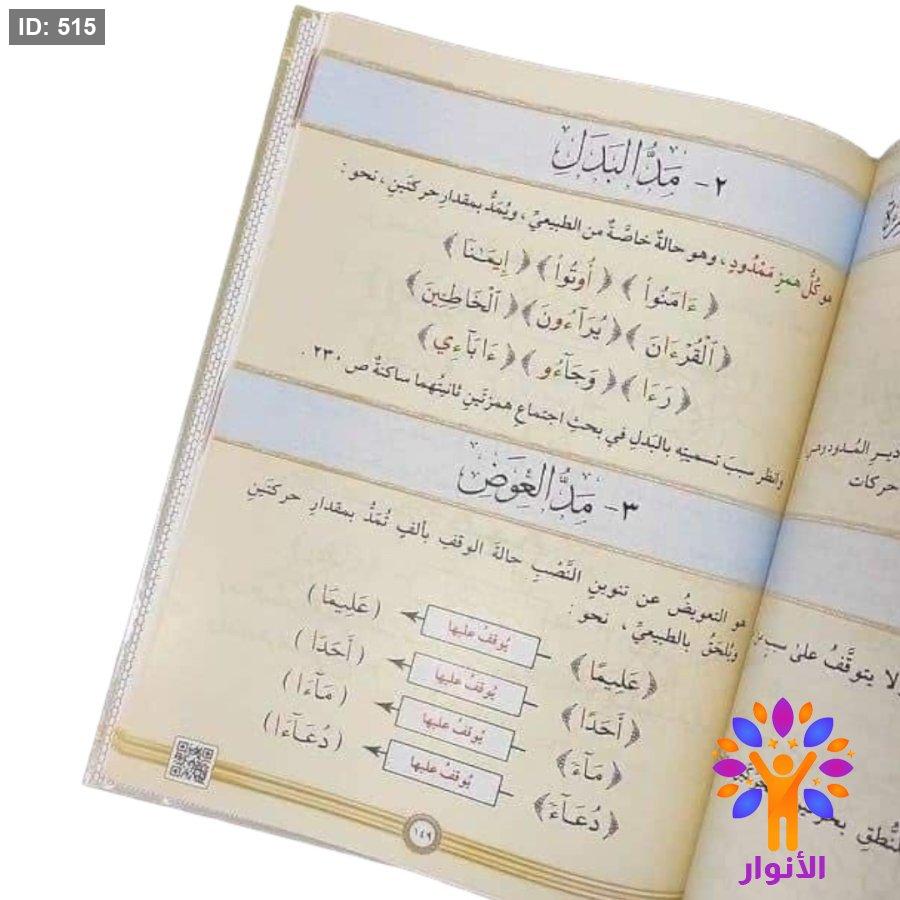 ID: 515
٢- مَدُّ البَدَلِ
هو كُلُّ همزٍ مَمْدُودٍ، وهو حالةٌ خاصَّةٌ من الطبيعيِّ، ويُمَدُّ بمقدارِ حركتَينِ، نحو:
﴿ءَامَنُواْ﴾ ﴿أُوتُواْ﴾ ﴿إِيمَـٰنًا﴾
﴿ٱلْقُرْءَانَ﴾ ﴿يُرَآءُونَ﴾ ﴿ٱلْخَاطِـِٔينَ﴾
﴿رَءَا﴾ ﴿وَجَآءُو﴾ ﴿ءَابَآءِي﴾
وانظر سببَ تسميتِه بالبَدلِ في بحثِ اجتماعِ همزتَينِ ثانيتُهما ساكنةٌ ص ٢٣٠.
٣- مَدُّ العِوَضِ
هو التعويضُ عن تنوينِ النَّصْبِ حالةَ الوقفِ بألفٍ تُمَدُّ بمقدارِ حركتَينِ
ويُلحَقُ بالطبيعيِّ، نحو:
﴿عَلِيمًا﴾ يُوقفُ عليها (عَلِيمَا)
﴿أَحَدًا﴾ يُوقفُ عليها (أَحَدَا)
﴿مَآءً﴾ يُوقفُ عليها (مَآءَا)
﴿دُعَآءً﴾ يُوقفُ عليها (دُعَآءَا)
١٤٩
ديرِ المُدودِ وهي
حركات
ولا يتوقَّفُ على سببٍ
الأنوار